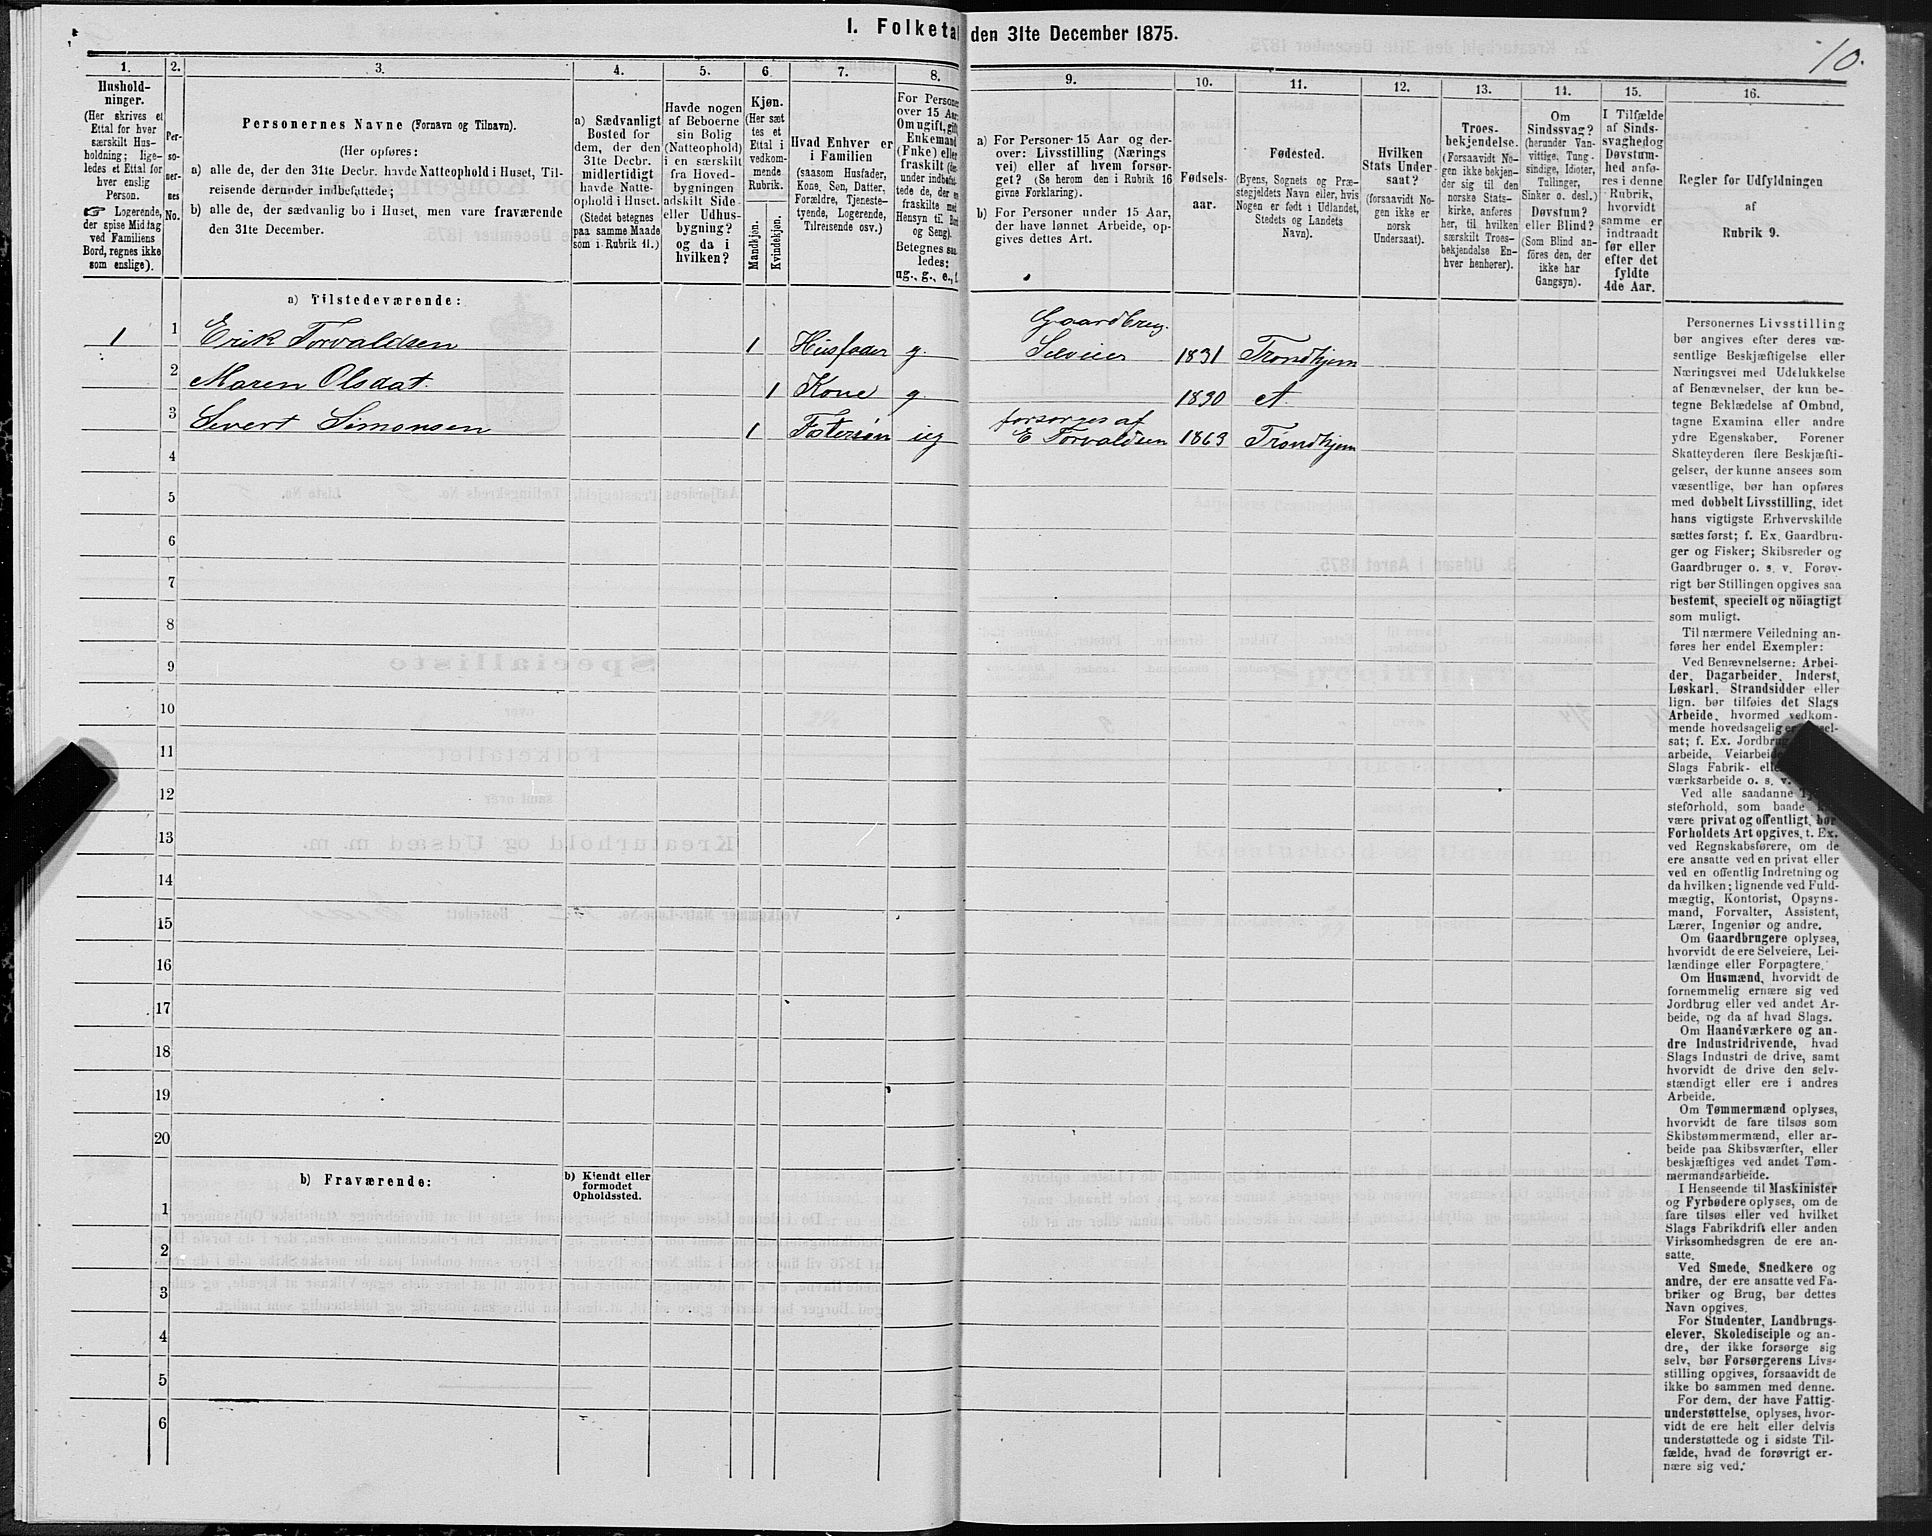 I. Folketal den 31te December 1875.
10.
1.
Hushold-
ninger.
(Her skrives et
Ettal for hver
særskilt Hus-
holdning; lige-
ledes et Ettal for
hver enslig
Person.
☞ Logerende,
der spise Middag
ved Familiens
Bord, regnes ikke
som enslige).
2.
Per-
so-
ner-
nes
No.
3.
Personernes Navne (Fornavn og Tilnavn).
(Her opføres:
a) alle de, der den 31te Decbr. havde Natteophold i Huset, Til-
reisende derunder indbefattede;
b) alle de, der sædvanlig bo i Huset, men vare fraværende
den 31te December.
4.
a) Sædvanligt
Bosted for
dem, der den
31te Decbr.
midlertidigt
havde Natte-
ophold i Huset.
(Stedet betegnes
paa samme Maade
som i Rubrik 11.)
5.
Havde nogen
af Beboerne
sin Bolig
(Natteophold)
i en særskilt
fra Hoved-
bygningen
adskilt Side-
eller Udhus-
bygning?
og da i
hvilken?
6.
Kjøn.
(Her sæt
tes et
Ettal i
vedkom-
mende
Rubrik.
Mandkjøn.
Kvindekjøn.
7.
Hvad Enhver er
i Familien
(saasom Husfader,
Kone, Søn, Datter,
Forældre, Tjeneste-
tyende, Logerende,
Tilreisende osv.)
8.
For Persone
over 15 Aar:
Om ugift, gift,
Enkemand
(Enke) eller
fraskilt (der-
under indbefat-
tede de, der er
fraskilte med
Hensyn til Bord
og Seng).
Betegnes saa
ledes:
ug., g., e., f.
9.
a) For Personer 15 Aar og der-
over: Livsstilling (Nærings
vei) eller af hvem forsør-
get? (Se herom den i Rubrik 16
givne Forklaring).
b) For Personer under 15 Aar,
der have lønnet Arbeide, op-
gives dettes Art.
10.
Fødsels-
aar.
11.
Fødested.
(Byens, Sognets og Præ-
stegjeldets Navn eller, hvis
Nogen er født i Udlandet,
Stedets og Landets
Navn).
12.
Hvilken
Stats Under
saat?
(forsaavidt No-
gen ikke er
norsk
Undersaat).
13.
Troes-
bekjendelse.
(Forsaavidt No-
gen ikke bekjen-
der sig til den
norske Stats-
kirke, anføres
her, til hvilken
særskilt Troes-
bekjendelse En-
hver henhører).
14.
Om
Sindssvag?
(herunder Van-
vittige, Tung-
sindige, Idioter,
Tullinger,
Sinker o. desl.)
Døvstum?
eller Blind?
(Som Blind an-
føres den, der
ikke har
Gangsyn).
15.
I Tilfælde
af Sinds-
svaghed og
Døvstum-
hed anfø-
res i denne
Rubrik,
hvorvidt
samme er
indtraadt
før eller
efter det
fyldte
4de Aar.
16.
Regler for Udfyldningen
af
Rubrik 9.
a) Tilstedeværende:
1 1 Erik Torvaldsen 1 Husfader g. Gaardbrug.
Selveier 1831 Trondhjem
2 Maren Olsdat. 1 Kone g. 1830 A
3 Sivert Simonsen 1 Fostersøn ug forsørges af
E Torvaldsen 1863 Trondhjem
4
5
6
7
8
9
10
11
12
13
14
15
16
17
18
19
20
b) Fraværende:
b) Kjendt eller
formodet
Opholdssted.
1
2
3
4
5
6
Personernes Livsstilling
bør angives efter deres væ-
sentlige Beskjæftigelse eller
Næringsvei med Udelukkelse
af Benævnelser, der kun be-
tegne Beklædelse af Ombud,
tagne Examina eller andre
ydre Egenskaber. Forener
Skatteyderen flere Beskjæfti-
gelser, der kunne ansees som
væsentlige, bør han opføres
med dobbelt Livsstilling, idet
hans vigtigste Erhvervskilde
sættes først; f. Ex. Gaardbru-
ger og Fisker; Skibsreder og
Gaardbruger o. s. v. Forøv-
rigt bør Stillingen opgives saa
bestemt, specielt og nöiagtigt
som muligt.
Til nærmere Veiledning an-
føres her endel Exempler:
Ved Benævnelserne: Arbei-
der, Dagarbeider, Inderst,
Løskarl, Strandsidder eller
lign. bør tilføies det Slags
Arbeide, hvormed vedkom-
mende hovedsagelig er
sat; f. Ex. Jordbrug
arbeide, Veiarbeid
Slags Fabrik- elle
værksarbeide o. s. v.
Ved alle saadanne
steforhold, som baade
være privat og offentligt, bør
Forholdets Art opgives, t. Ex.
ved Regnskabsførere, om de
ere ansatte ved en privat eller
ved en offentlig Indretning og
da hvilken; lignende ved Fuld-
mægtig, Kontorist, Opsyns-
mand, Forvalter, Assistent,
Lærer, Ingeniør og andre.
Om Gaardbrugere oplyses,
hvorvidt de ere Selveiere, Lei-
lændinge eller Forpagtere.
Om Husmænd, hvorvidt de
fornemmelig ernære sig ved
Jordbrug eller ved andet Ar-
beide, og da af hvad Slags.
Om Haandværkere og an-
dre Industridrivende, hvad
Slags Industri de drive, samt
hvorvidt de drive den selv-
stændigt eller ere i andres
Arbeide.
Om Tømmermænd oplyses,
hvorvidt de fare tilsøs som
Skibstømmermænd, eller ar-
beide paa Skibsværfter, eller
beskjæftiges ved andet Tøm-
mermandsarbeide.
I Henseende til Maskinister
og Fyrbødere oplyses, om de
fare tilsøs eller ved hvilket
Slags Fabrikdrift eller anden
Virksomhedsgren de ere an-
satte.
Ved Smede, Snedkere og
andre, der ere ansatte ved Fa-
briker og Brug, bør dettes
Navn opgives.
For Studenter, Landbrugs-
elever, Skoledisciple og an-
dre, der ikke forsørge sig
selv, bør Forsørgerens Livs-
stilling opgives, forsaavidt de
ikke bo sammen med denne.
For dem, der have Fattig-
understøttelse, oplyses, hvor-
vidt de ere helt eller delvis
understøttede og i sidste Til-
fælde, hvad de forøvrigt er-
nære sig ved.